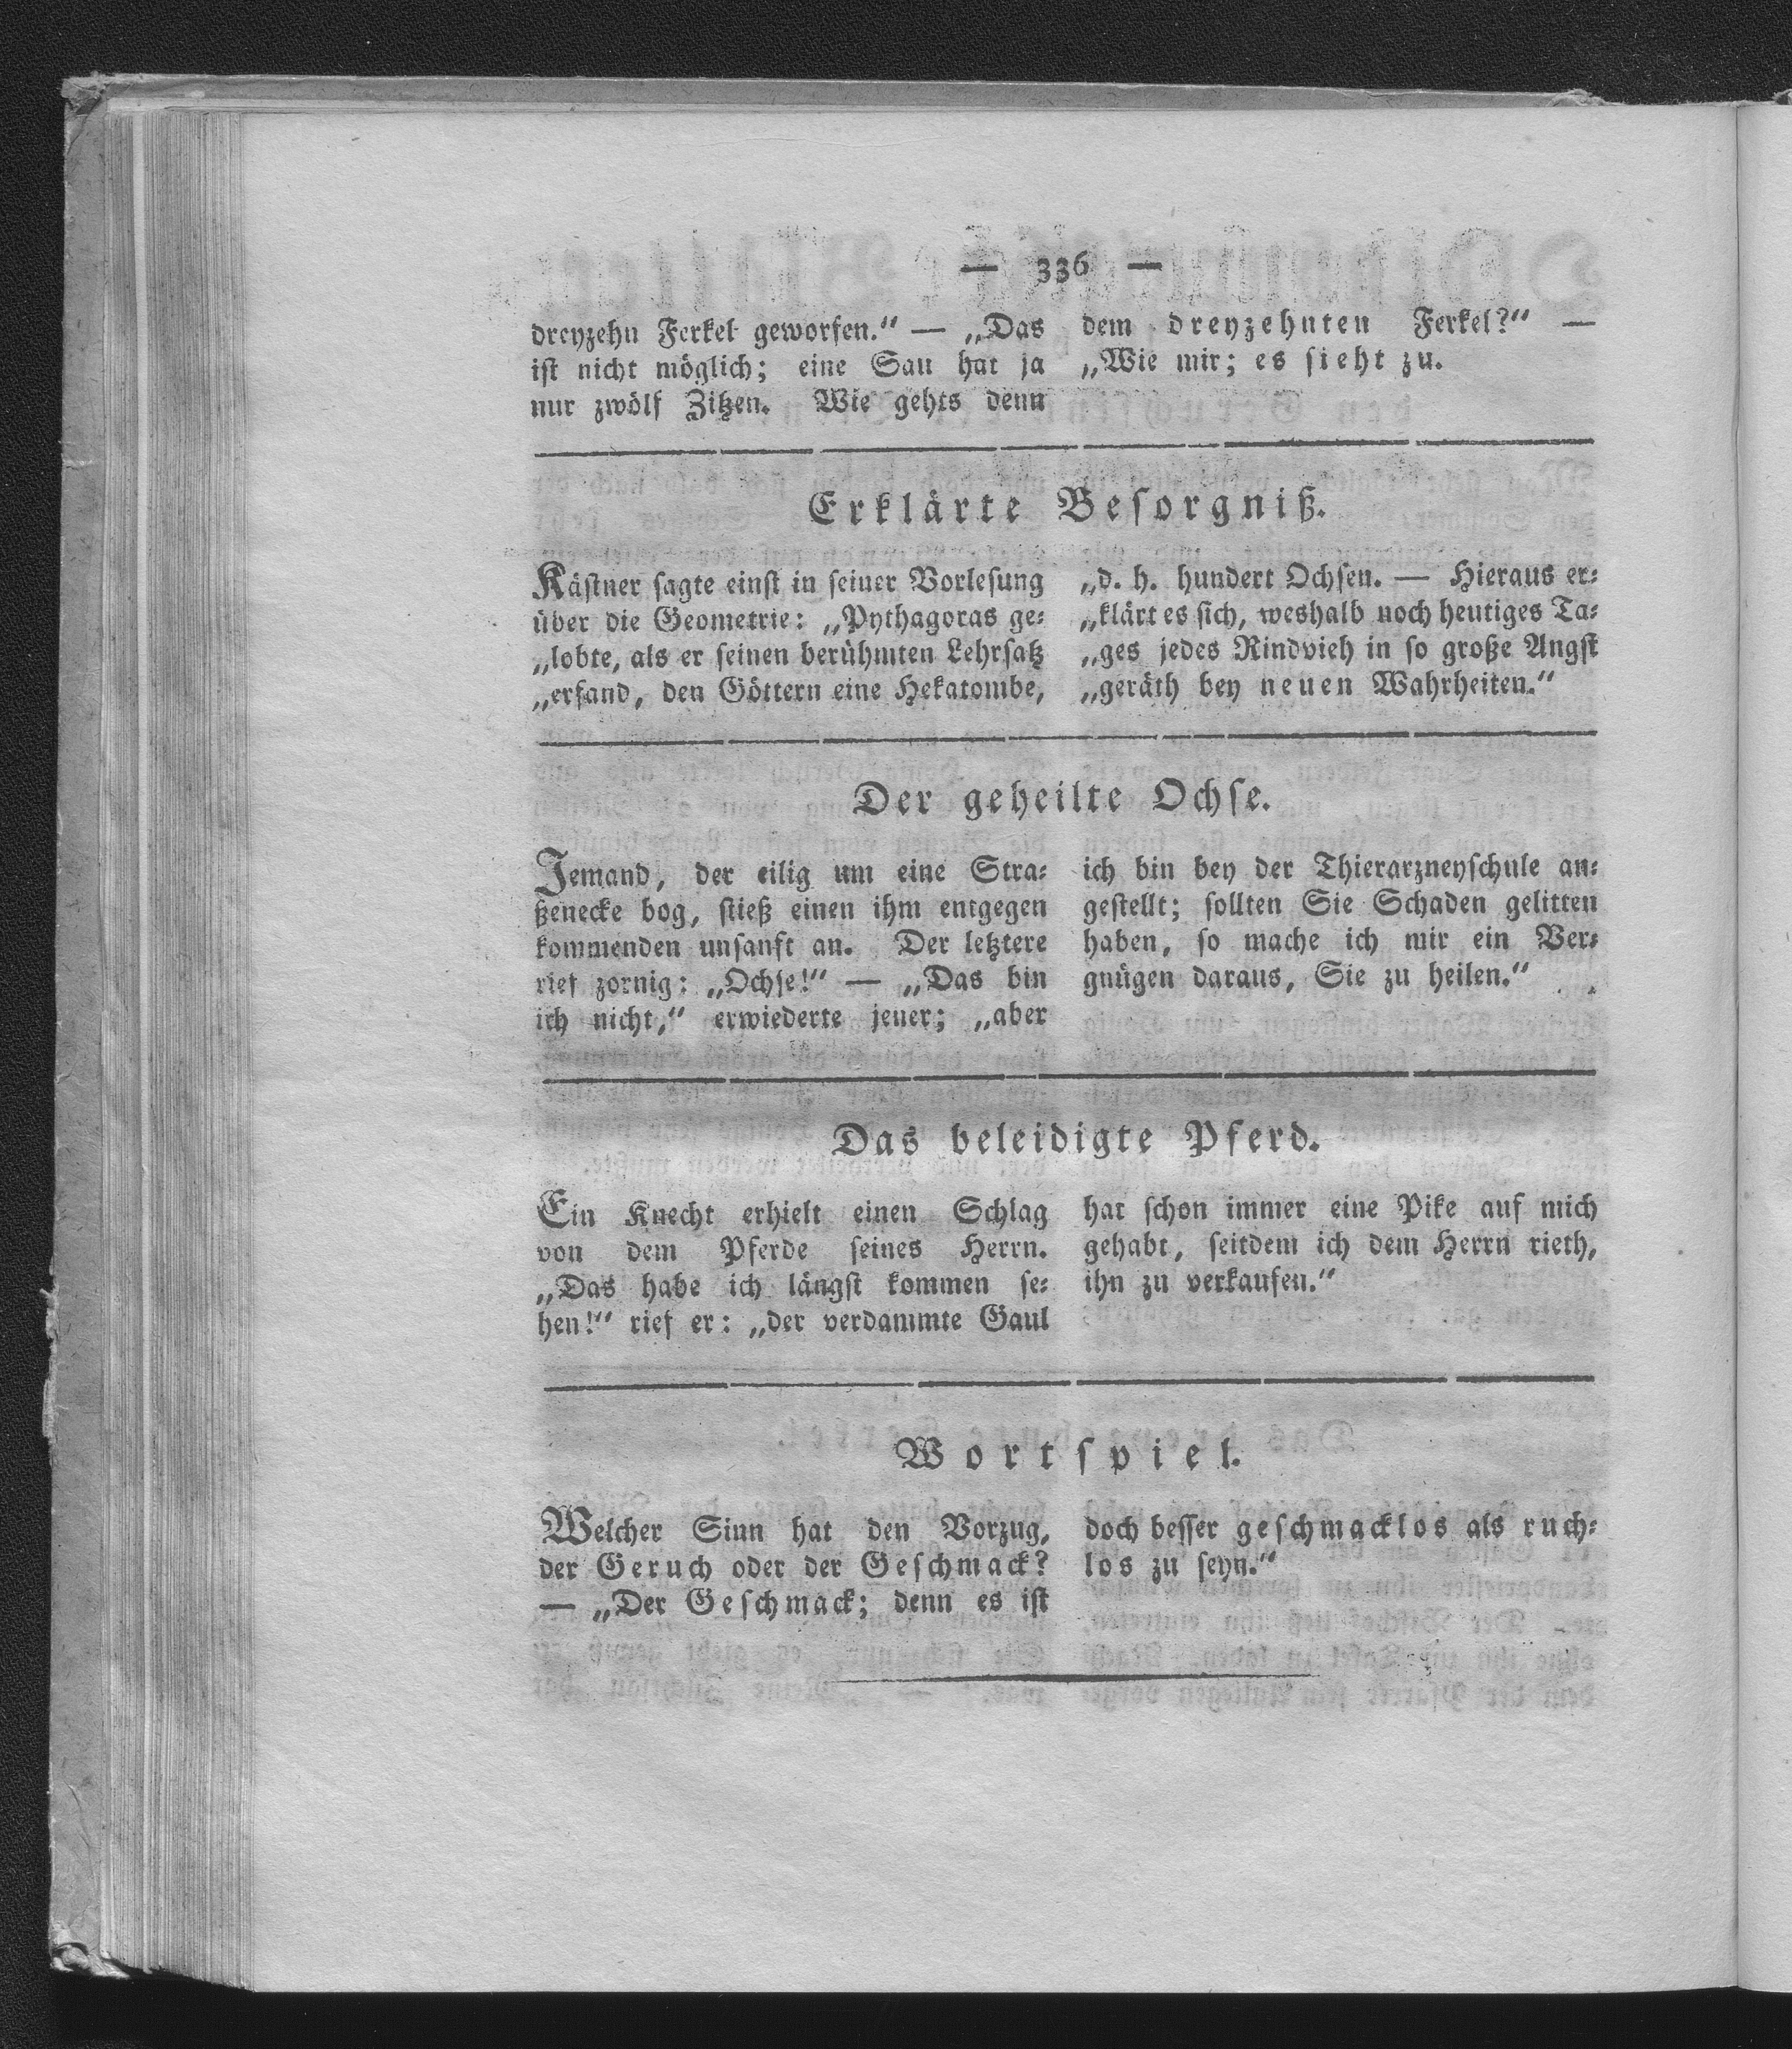 — 336 —
dreyzehn Ferkel geworfen.“ — „Das
ist nicht möglich; eine Sau hat ja
nur zwölf Zitzen. Wie gehts denn
dem dreyzehnten Ferkel?“ —
„Wie mir; es sieht zu.
Erklärte Besorgniß.
Kästner sagte einst in seiner Vorlesung
über die Geometrie: „Pythagoras ge-
„lobte, als er seinen berühmten Lehrsatz
„erfand, den Göttern eine Hekatombe,
„d. h. hundert Ochsen. — Hieraus er-
„klärt es sich, weshalb noch heutiges Ta-
„ges jedes Rindvieh in so große Angst
„geräth bey neuen Wahrheiten.“
Der geheilte Ochse.
Jemand, der eilig um eine Stra-
ßenecke bog, stieß einen ihm entgegen
kommenden unsanft an. Der letztere
rief zornig: „Ochse!“ — „Das bin
ich nicht,“ erwiederte jener; „aber
ich bin bey der Thierarzneyschule an-
gestellt; sollten Sie Schaden gelitten
haben, so mache ich mir ein Ver-
gnügen daraus, Sie zu heilen.“
Das beleidigte Pferd.
Ein Knecht erhielt einen Schlag
von dem Pferde seines Herrn.
„Das habe ich längst kommen se-
hen!“ rief er: „der verdammte Gaul
hat schon immer eine Pike auf mich
gehabt, seitdem ich dem Herrn rieth,
ihn zu verkaufen.“
Wortspiel.
Welcher Sinn hat den Vorzug,
der Geruch oder der Geschmack?
— „Der Geschmack; denn es ist
doch besser geschmacklos als ruch-
los zu seyn.“